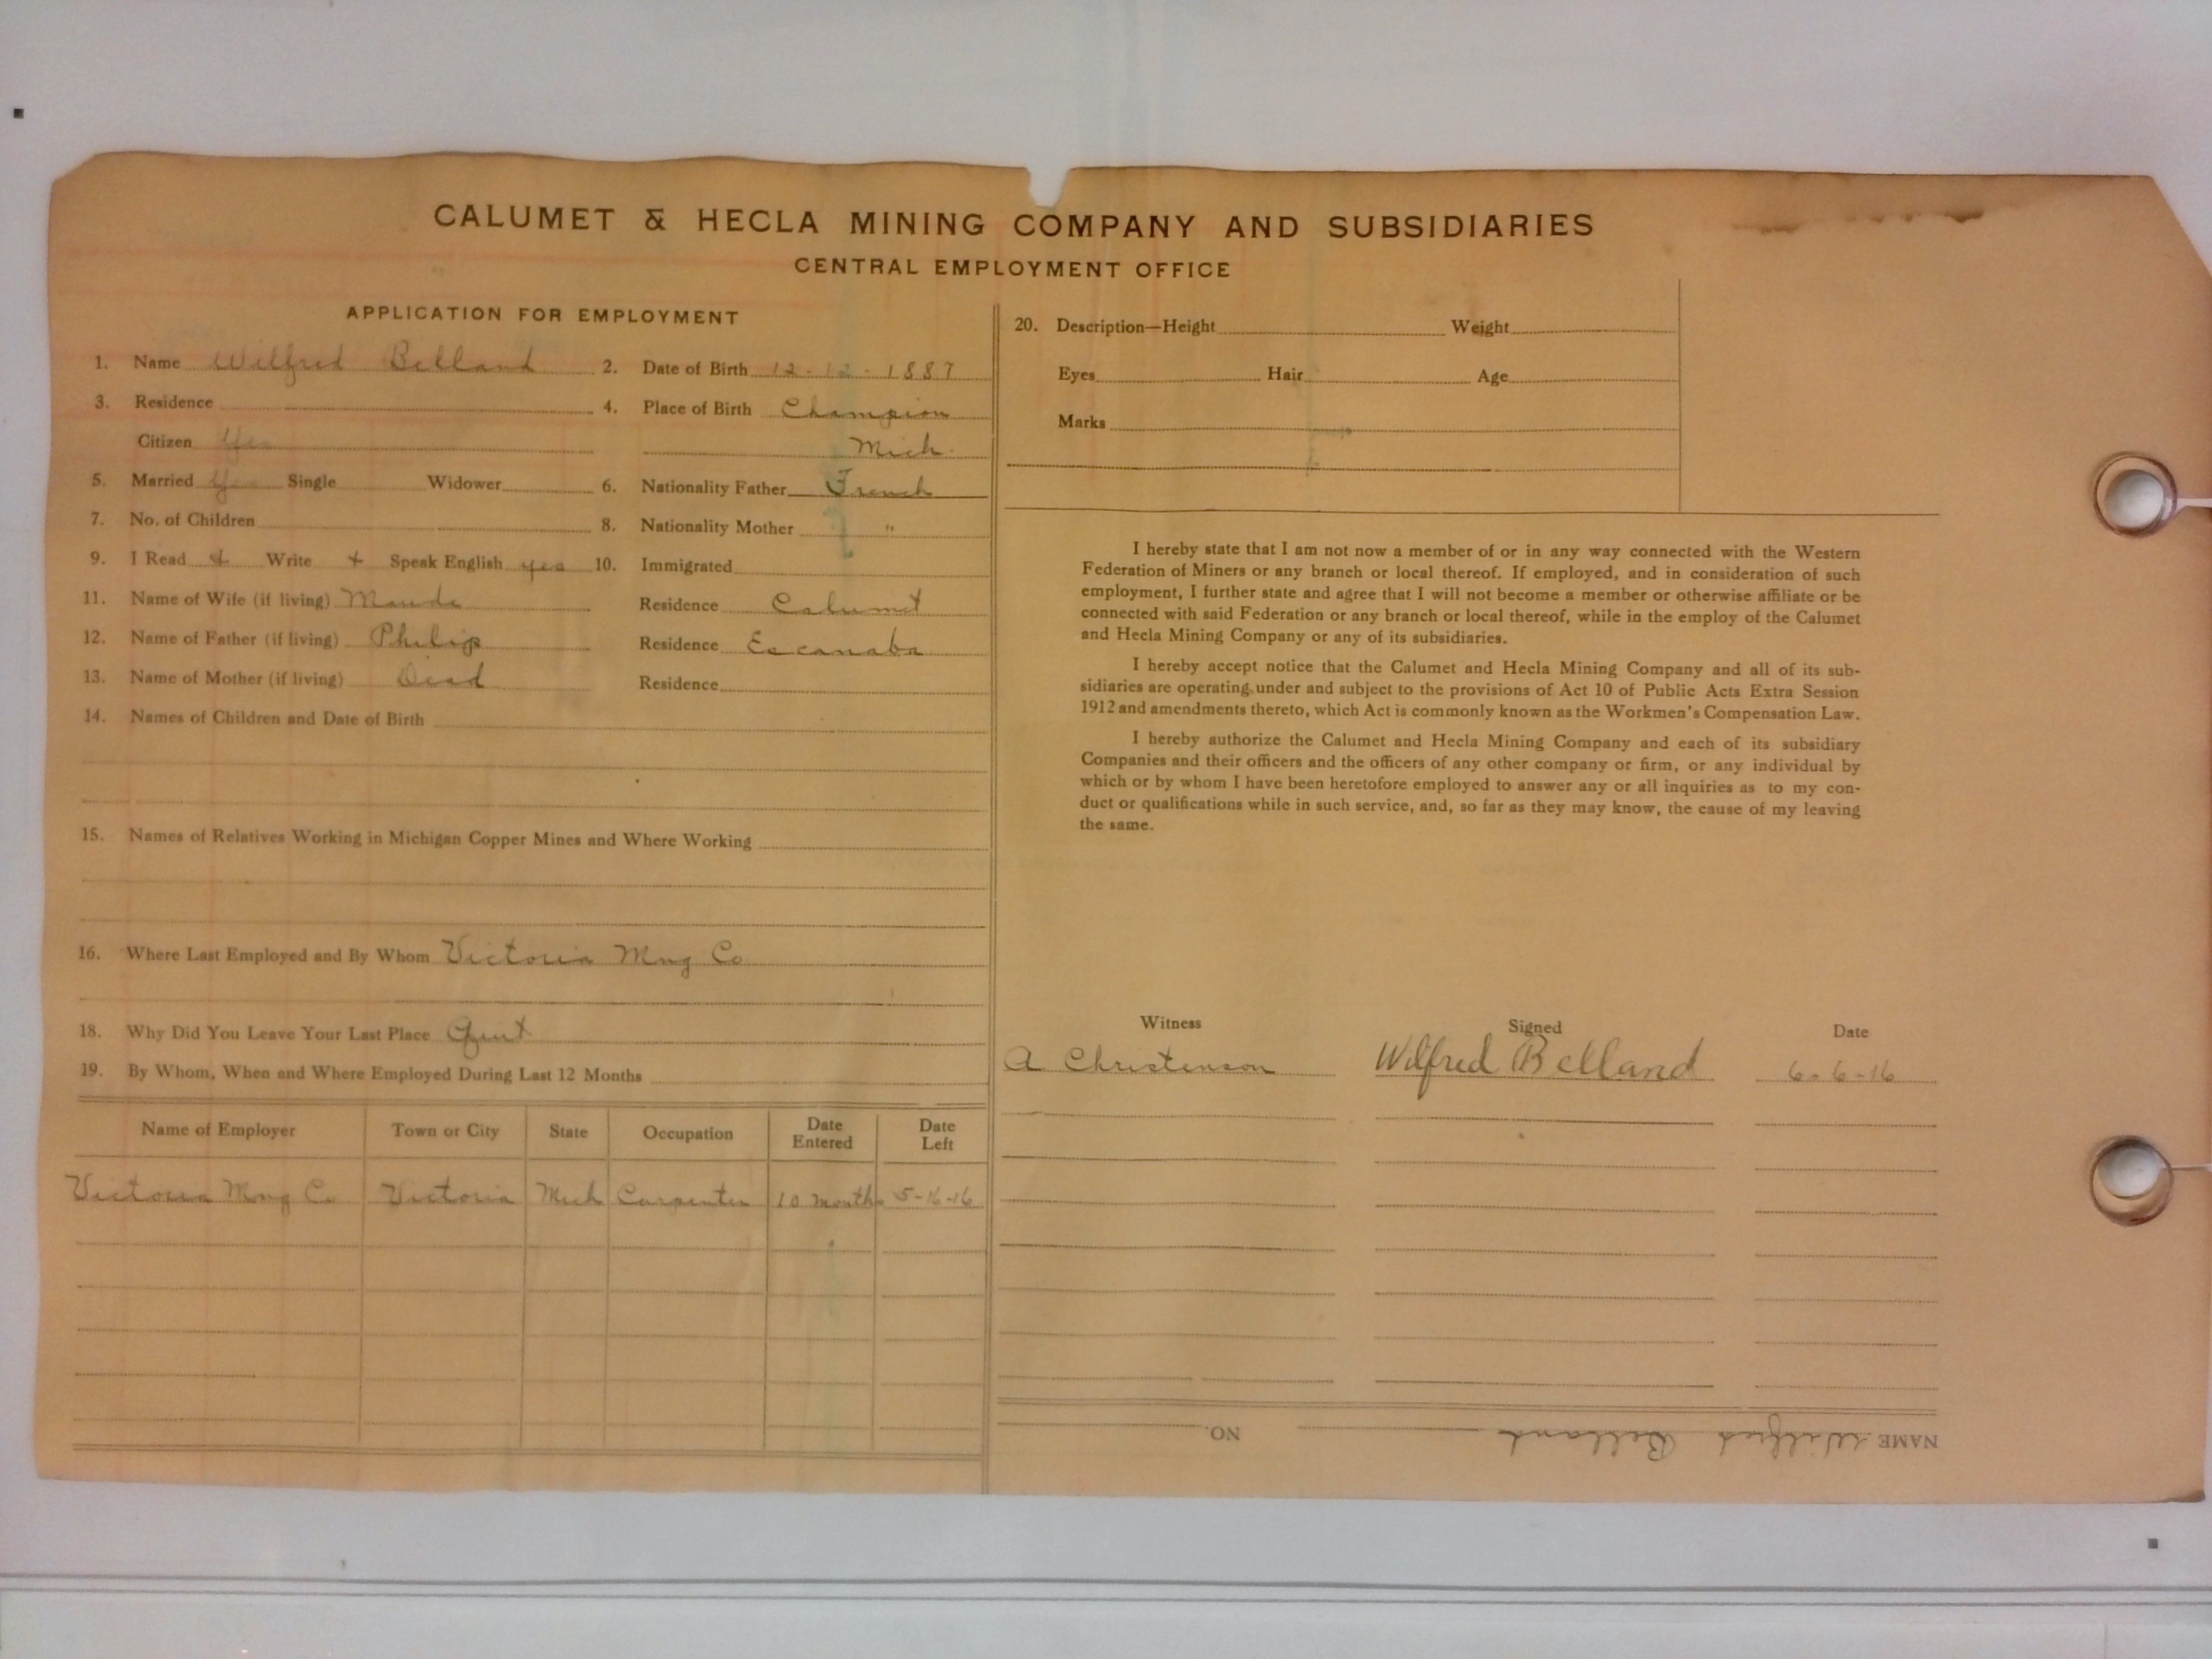 CALUMET & HECLA MINING COMPANY AND SUBSIDIARIES
CENTRAL EMPLOYMENT OFFICE
APPLICATION FOR EMPLOYMENT
1. Name Wilfred Belland 2. Date of Birth 12-12-1887
3. Residence 4. Place of Birth Champion
Citizen Yes Mich.
5. Married Yes Single Widower 6. Nationality Father French
7. No. of Children 8. Nationality Mother "
9. I Read + Write + Speak English yes 10. Immigrated
11. Name of Wife (if living) Maude Residence Calumet
12. Name of Father (if living) Philip Residence Escanaba
13. Name of Mother (if living) Dead Residence
14. Names of Children and Date of Birth
15. Names of Relatives Working in Michigan Copper Mines and Where Working
16. Where Last Employed and By Whom Victoria Mng Co
18. Why Did You Leave Your Last Place Quit
19. By Whom, When and Where Employed During Last 12 Months
Name of Employer Town or City State Occupation Date Entered Date Left
Victoria Mng Co Victoria Mich Carpenter 10 months 5-16-16
20. Description—Height Weight
Eyes Hair Age
Marks
I hereby state that I am not now a member of or in any way connected with the Western
Federation of Miners or any branch or local thereof. If employed, and in consideration of such
employment, I further state and agree that I will not become a member or otherwise affiliate or be
connected with said Federation or any branch or local thereof, while in the employ of the Calumet
and Hecla Mining Company or any of its subsidiaries.
I hereby accept notice that the Calumet and Hecla Mining Company and all of its sub-
sidiaries are operating under and subject to the provisions of Act 10 of Public Acts Extra Session
1912 and amendments thereto, which Act is commonly known as the Workmen's Compensation Law.
I hereby authorize the Calumet and Hecla Mining Company and each of its subsidiary
Companies and their officers and the officers of any other company or firm, or any individual by
which or by whom I have been heretofore employed to answer any or all inquiries as to my con-
duct or qualifications while in such service, and, so far as they may know, the cause of my leaving
the same.
Witness Signed Date
A Christenson Wilfred Belland 6-6-16
NAME Wilfred Belland NO.